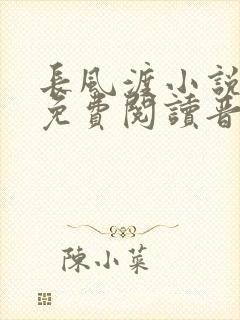 長風渡小說
免費閱讀晋
陳小菜